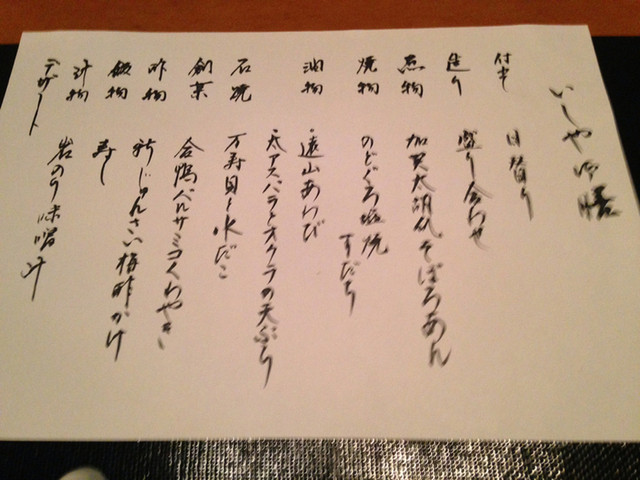 いしや吟膳
付き 日替り
造り 盛り合わせ
煮物 加賀太胡瓜そぼろあん
焼物 のどぐろ塩焼
すだち
油物 ・遠山あわび
・太アスパラとオクラの天ぷら
石焼 万寿貝と水だこ
創菜 合鴨バルサミコくわやき
酢物 新じゅんさい梅酢かけ
飯物 寿し
汁物 岩のり味噌汁
デザート